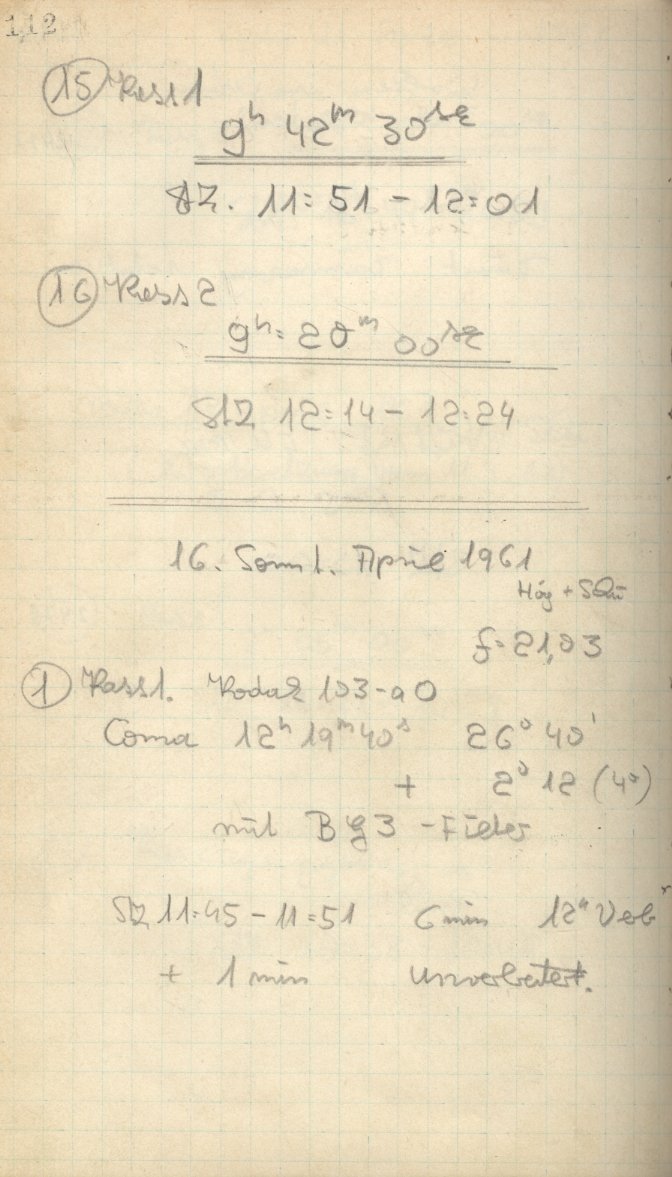 112
15 Kass 1
9h 42m 30sec
StZ. 11:51 - 12:01
16 Kass 2
9h: 20m 00sec
StZ 12:14 - 12:24
16. Sonnt. April 1961
Hög +
f=21,03
1 Kass1. Kodak 103-a O
Coma 12h 19m 40s 26° 40'
+ 2° 12 (4°)
mit BG3 - Filter
StZ 11:45 - 11:51 6 min 12" Verb
+ 1 min unverbeitert.